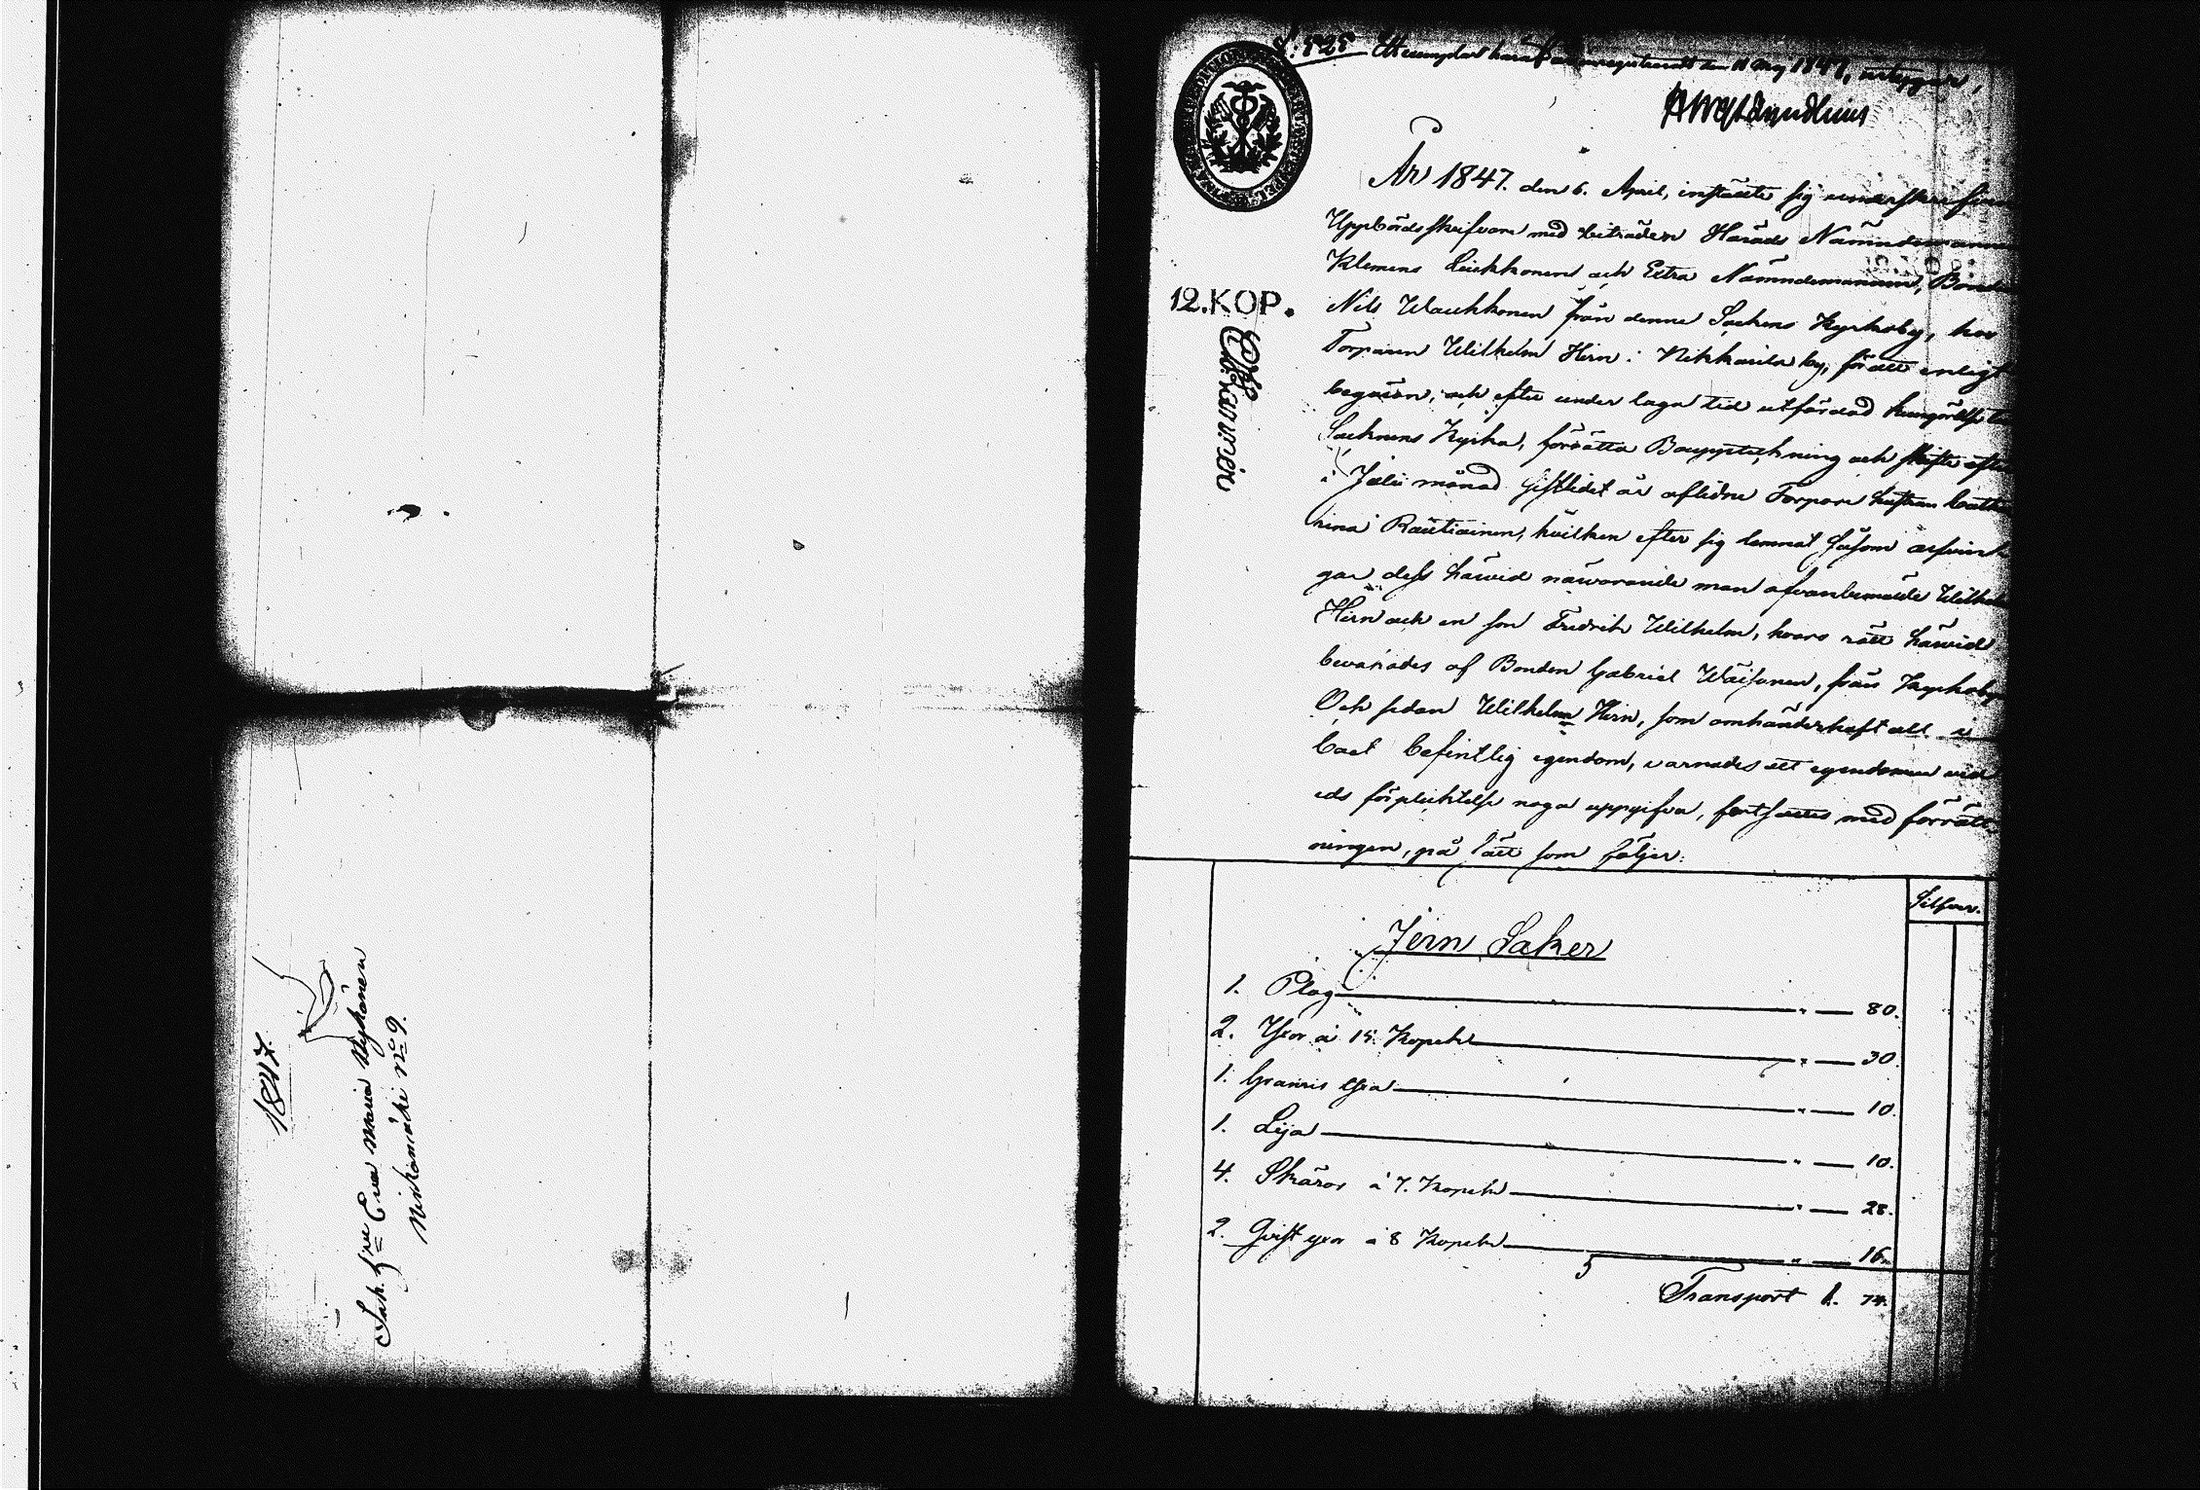 1847.
Sak. hru Eva Maria Nykänen
Nirkomäki No 9.
S: 525 Ett exemplar häraf den 11 Maj 1847, intygar,
År 1847. den 6. April, instälte sig undertecknad
Uppbördsskrifvare med biträden Härads Nämndemannen
Klemens Leickkonen och Extra Nämndemannen, Bonden
12. KOP. Nils Wauhkonen från denne Sockens Kyrkoby, hos
Torparen Wilhelm Hirn i Nikkarila by, för att enligt
begäran, och efter under laga tid utfärdad kungörelse
Socknens Kyrka, förrätta Bouppteckning och skifte efter
i Juli månad sistledit år aflidne Torpare hustrun Catha
rina Rautiainen, hvilken efter sig lemnat såsom arfvin
gar dess härvid närvarande man ofvanbemälde Wilhelm
Hirn och en son Fredrik Wilhelm, hvars rätt härvid
bevakades af Bonden Gabriel Wäisänen, från Kyrkoby
Och sedan Wilhelm Hirn, som omhänderhaft all i
boet befintlig egendom, varnades att egendomen vid
eds förplicktelse noga uppgifva, fortsattes med förrätt
ningen, på sätt som följer:
Silfver.
Jern Saker
1. Plog " 80.
2. Yxor á 15. Kopek " 30.
1. yxa " 10.
1. Lija " 10.
4. Skäror á 7. Kopek " 28.
2. yxor á 8 Kopek " 16.
Transport 1. 74.